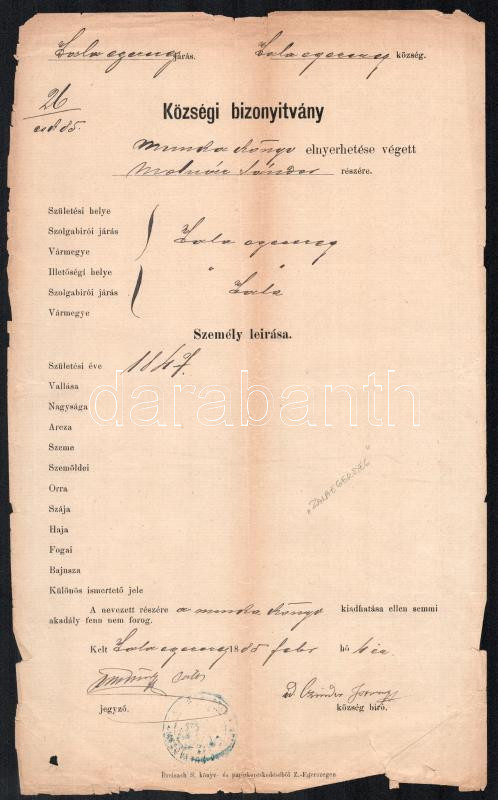 Zalaegerszeg járás. Zalaegerszeg község.
26
Községi bizonyitvány
munka könyv elnyerhetése végett
Molnár Sándor részére.
Születési helye
Szolgabirói járás Zala egerszeg
Vármegye
Illetőségi helye " "
Szolgabirói járás Zala
Vármegye
Személy leirása.
Születési éve 1847.
Vallása
Nagysága
darabanth
Arcza
Szeme
Szemöldei
"ZALAEGERSZEG"
Orra
Szája
Haja
Fogai
Bajusza
Különös ismertető jele
A nevezett részére a munka könyv kiadhatása ellen semmi
akadály fenn nem forog.
Kelt Zala egerszeg 1885 febr hó
jegyző. község biró.
Breisach S. könyv- és papirkereskedéséből Z.-Egerszegen